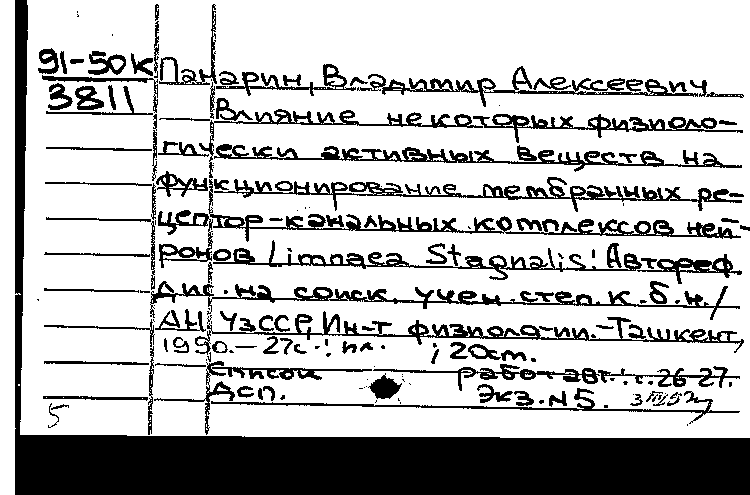 91-50К Панарин, Владимир Алексеевич
3811 Влияние некоторых физиоло-
гически активных веществ на
функционирование мембранных ре-
цептор-канальных комплексов ней-
ронов Limnaea Stagnalis: Автореф.
дис. на соиск. учен. степ. к.б.н./
АН УзССР, Ин-т физиологии.-Ташкент,
1990.-27с.: ил. ; 20см.
Список работ авт.: с.26-27.
Дсп. Экз.N5.
5